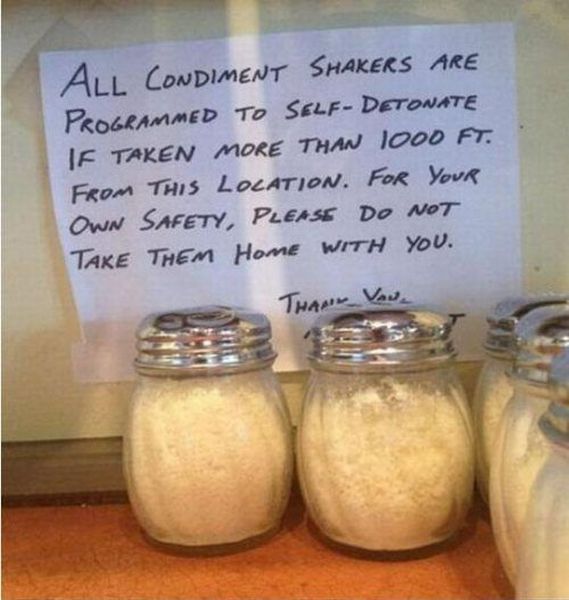 ALL CONDIMENT SHAKERS ARE
PROGRAMMED TO SELF-DETONATE
IF TAKEN MORE THAN 1000 FT.
FROM THIS LOCATION. FOR YOUR
OWN SAFETY, PLEASE DO NOT
TAKE THEM HOME WITH YOU.
THANK YOU.